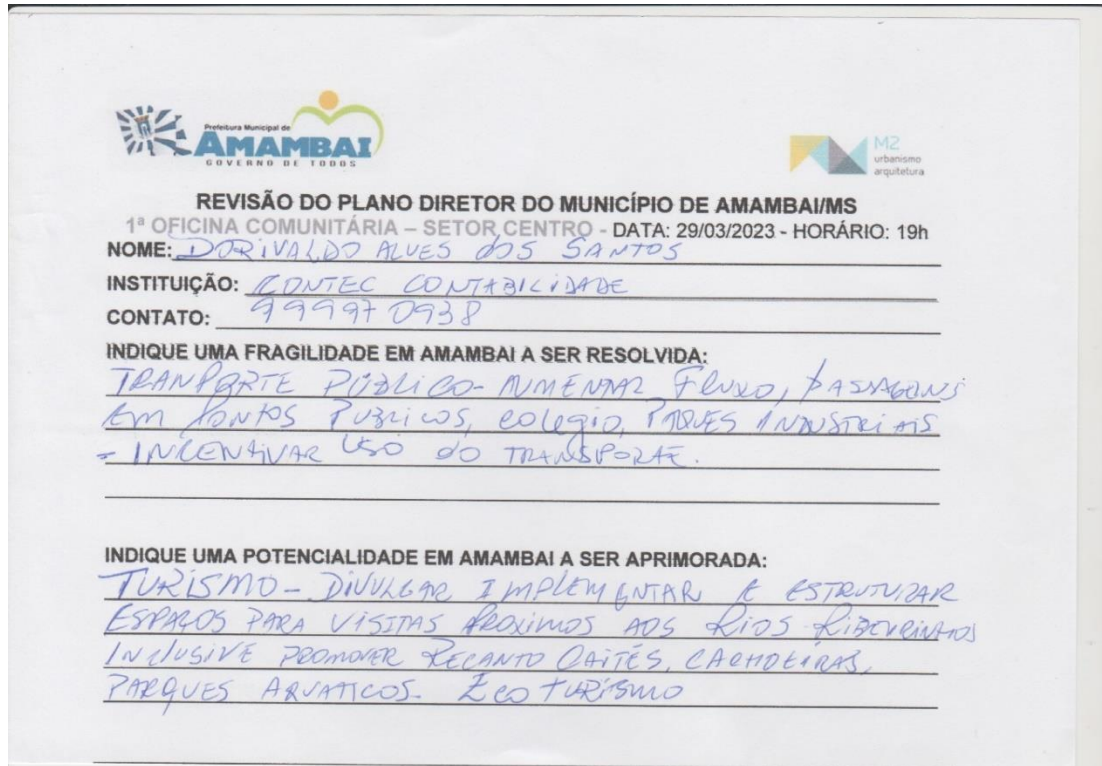 Prefeitura Municipal de
AMAMBAI
GOVERNO DE TODOS
M2
urbanismo
arquitetura
REVISÃO DO PLANO DIRETOR DO MUNICÍPIO DE AMAMBAI/MS
1ª OFICINA COMUNITÁRIA – SETOR CENTRO - DATA: 29/03/2023 - HORÁRIO: 19h
NOME: DORIVALDO ALVES dOS SANTOS
INSTITUIÇÃO: CONTEC CONTABILIDADE
CONTATO: 99997 0938
INDIQUE UMA FRAGILIDADE EM AMAMBAI A SER RESOLVIDA:
TRANPORTE PÚBLICO - AUMENTAR FLUXO, PASSAGENS
EM PONTOS PUBLICOS, COLEGIO, INDUSTRIAIS
- INCENTIVAR USO DO TRANSPORTE.
INDIQUE UMA POTENCIALIDADE EM AMAMBAI A SER APRIMORADA:
TURISMO - DIVULGAR IMPLEMENTAR E ESTRUTURAR
ESPAÇOS PARA VISITAS PROXIMOS AOS RIOS
INCLUSIVE PROMOVER RECANTO CACHOEIRAS,
PARQUES AQUATICOS. ECO TURISMO